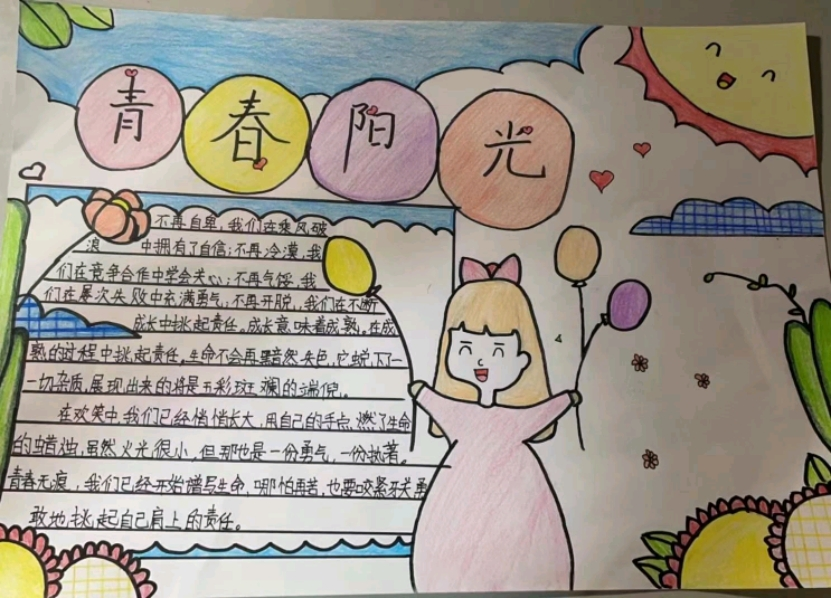 青春阳光
不再自卑,我们在乘风破
浪 中拥有了自信;不再冷漠,我
们在竞争合作中学会关心;不再气馁,我
们在屡次失败中充满勇气;不再开脱,我们在不断
成长中挑起责任。成长意味着成熟。在成
熟的过程中挑起责任。生命不会再黯然失色,它蜕下了一
一切杂质,展现出来的将是五彩斑斓的端倪。
在欢笑中,我们已经悄悄长大,用自己的手点燃了生命
的蜡烛,虽然火光很小,但那也是一份勇气,一份执著。
青春无痕,我们已经开始谱写生命,哪怕再苦,也要咬紧牙关勇
敢地挑起自己肩上的责任。